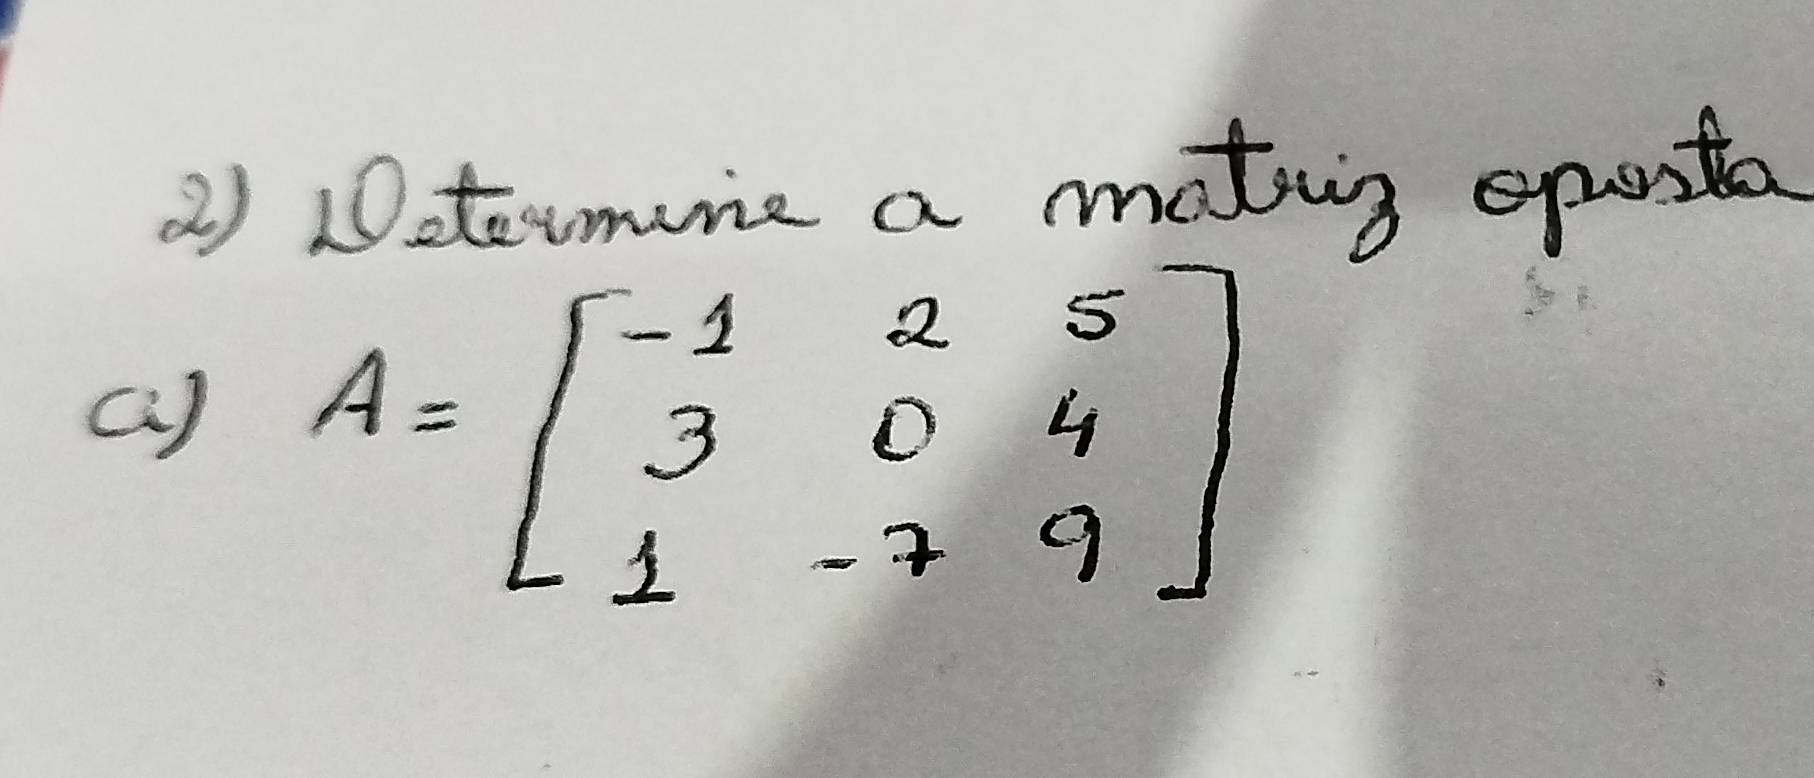 2) Determine a matriz oposta
a) A = [ -1 2 5
3 0 4
1 -7 9 ]